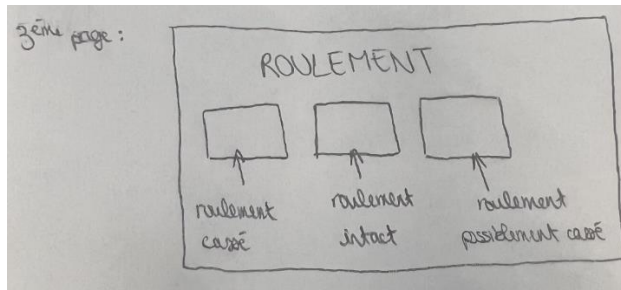 3ème page :
ROULEMENT
roulement cassé
roulement intact
roulement possiblement cassé